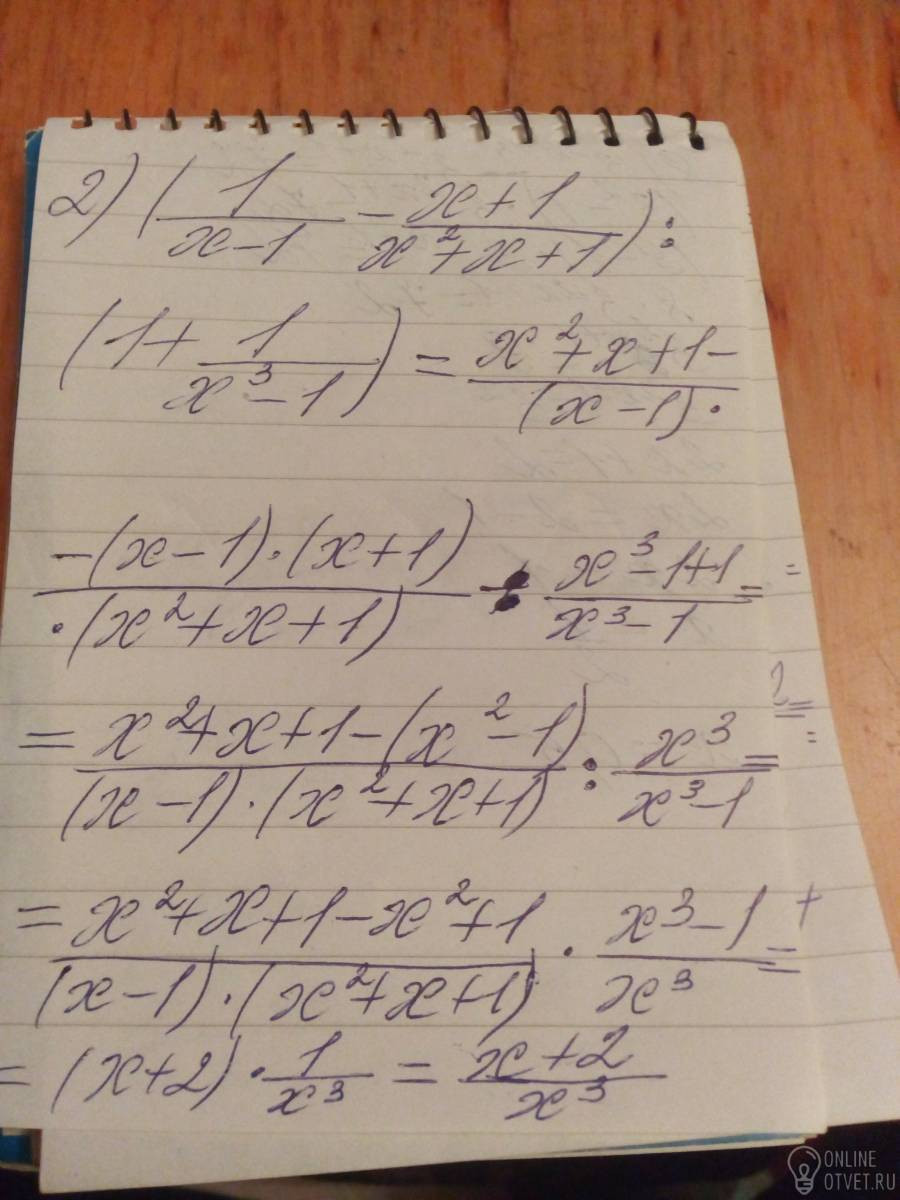 2) (1/(x-1) - (x+1)/(x²+x+1)) :
(1 + 1/(x³-1)) = (x²+x+1-)/((x-1)·
(-(x-1)·(x+1))/(·(x²+x+1)) : (x³-1+1)/(x³-1) =
= (x²+x+1-(x²-1))/((x-1)·(x²+x+1)) : x³/(x³-1) =
= (x²+x+1-x²+1)/((x-1)·(x²+x+1)) · (x³-1)/x³ =
= (x+2) · 1/x³ = (x+2)/x³
ONLINE
OTVET.RU